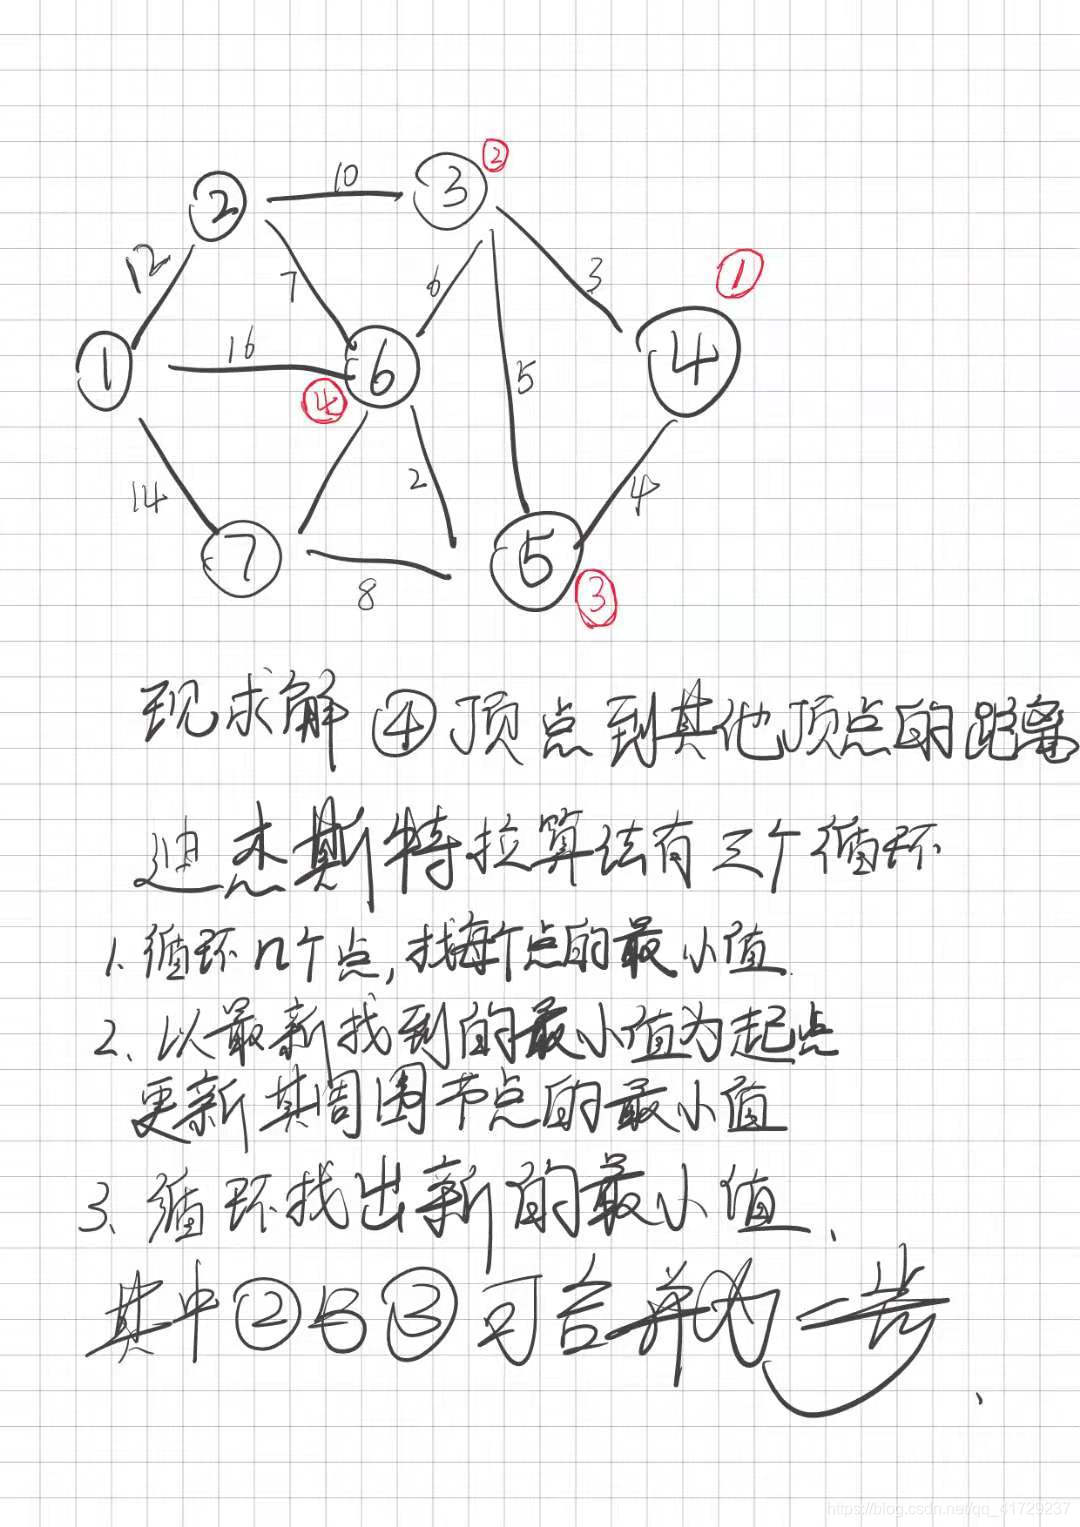 ②
10
2
3
12
7
6
3
①
16
1
6
4
5
④
14
2
4
7
8
5
③
现求解④顶点到其他顶点的距离
迪杰斯特拉算法有三个循环
1.循环n个点,找每个点的最小值.
2、以最新找到的最小值为起点
更新其周围节点的最小值
3、循环找出新的最小值、
其中②与③可合并为一步、
https://blog.csdn.net/qq_41729237